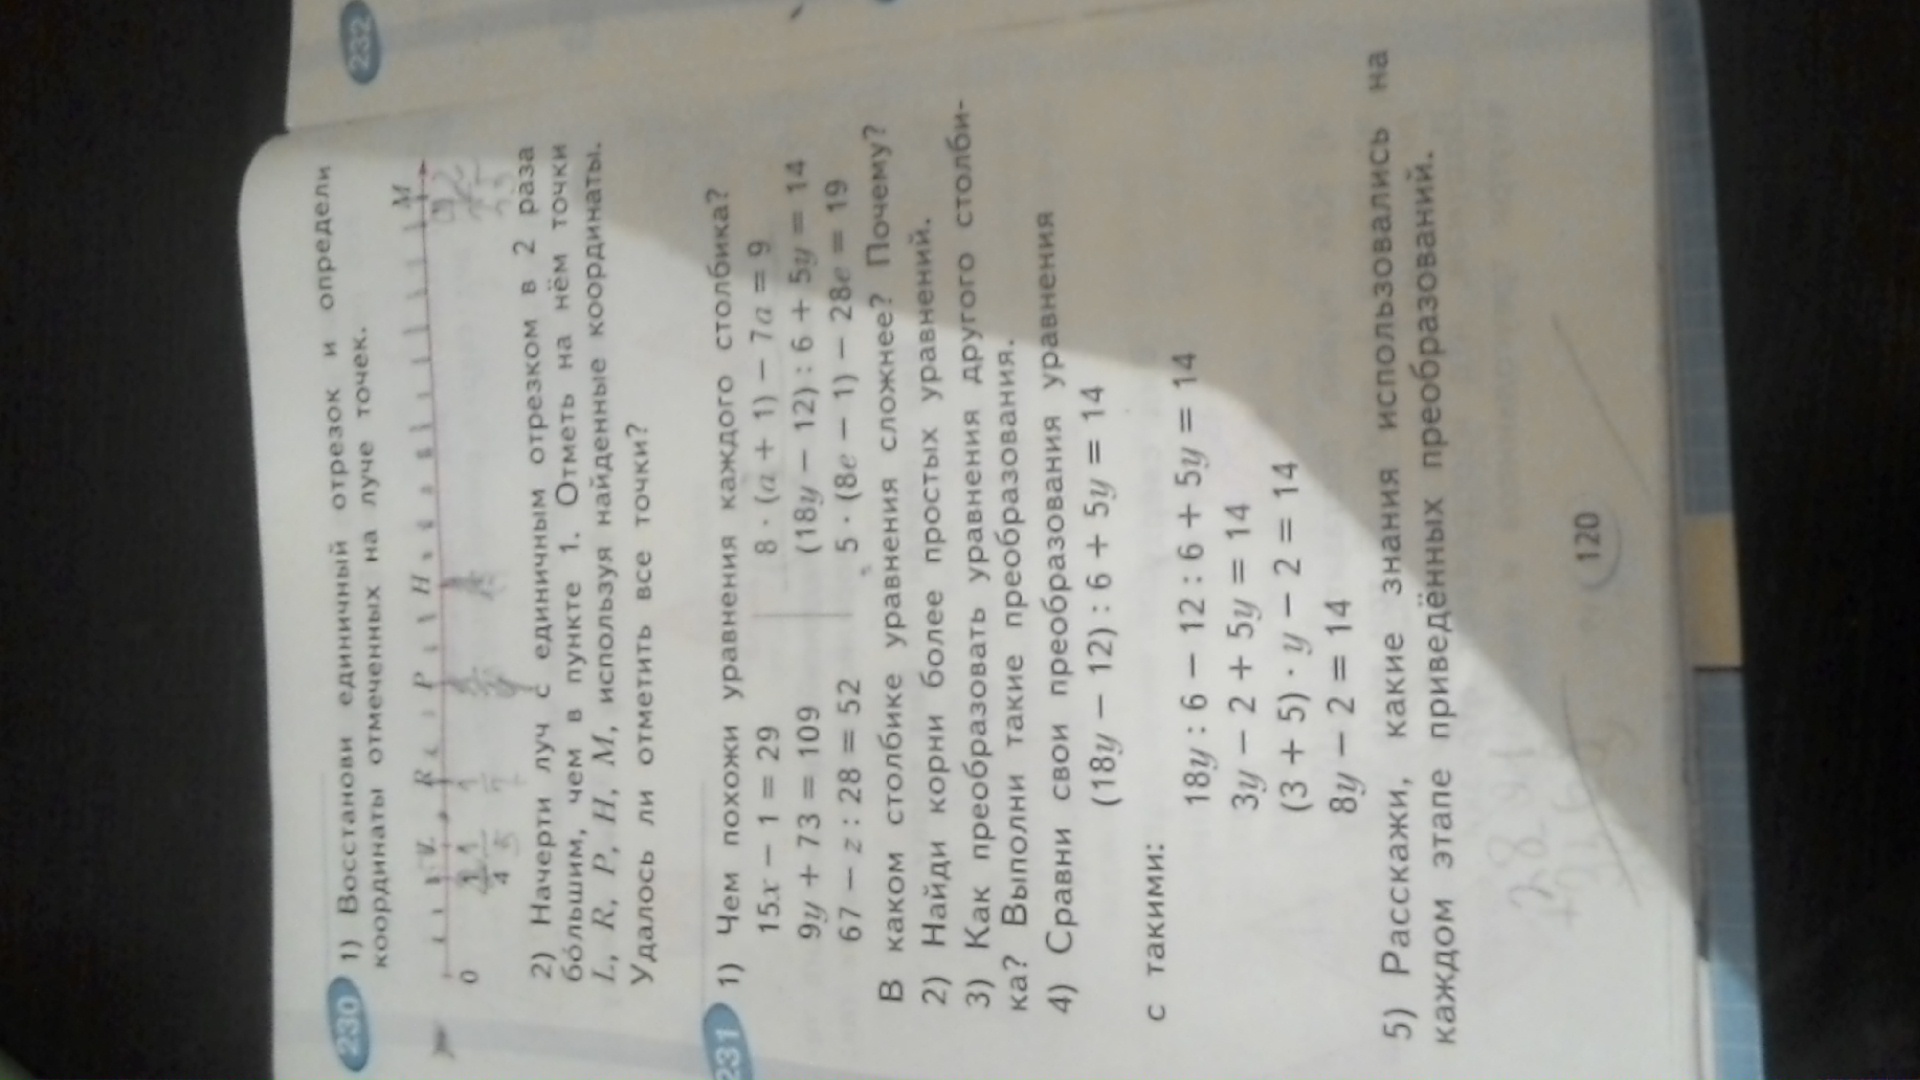 232
230 1) Восстанови единичный отрезок и определи
координаты отмеченных на луче точек.
R P H M
0
1 1 1
4 5 7
2) Начерти луч с единичным отрезком в 2 раза
бо́льшим, чем в пункте 1. Отметь на нём точки
L, R, P, H, M, используя найденные координаты.
Удалось ли отметить все точки?
231 1) Чем похожи уравнения каждого столбика?
15x − 1 = 29 8 · (a + 1) − 7a = 9
9y + 73 = 109 (18y − 12) : 6 + 5y = 14
67 − z : 28 = 52 5 · (8e − 1) − 28e = 19
В каком столбике уравнения сложнее? Почему?
2) Найди корни более простых уравнений.
3) Как преобразовать уравнения другого столби-
ка? Выполни такие преобразования.
4) Сравни свои преобразования уравнения
(18y − 12) : 6 + 5y = 14
с такими:
18y : 6 − 12 : 6 + 5y = 14
3y − 2 + 5y = 14
(3 + 5) · y − 2 = 14
8y − 2 = 14
5) Расскажи, какие знания использовались на
каждом этапе приведённых преобразований.
120